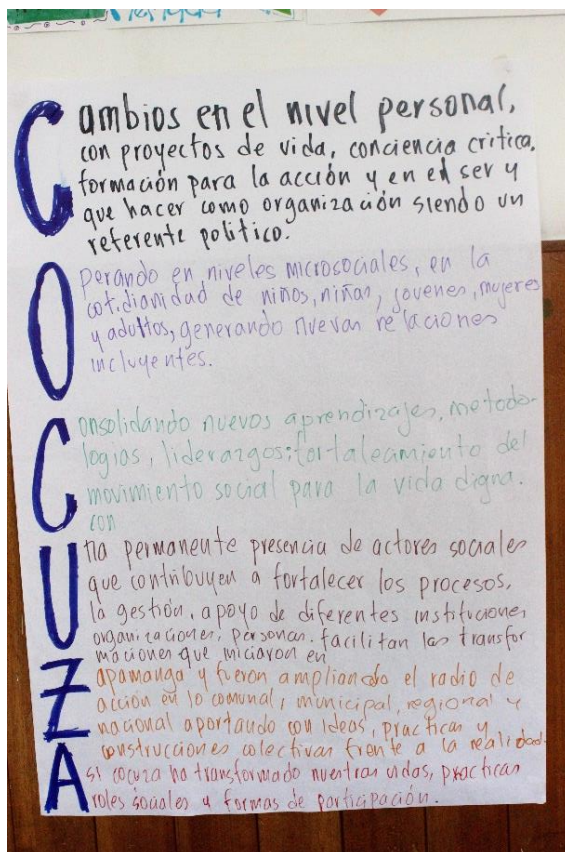 Cambios en el nivel personal,
con proyectos de vida, conciencia critica,
formación para la acción y en el ser y
que hacer como organización siendo un
referente politico.
Operando en niveles microsociales, en la
cotidianidad de niños, niñas, jovenes, mujeres
y adultos, generando nuevas relaciones
incluyentes.
Consolidando nuevos aprendizajes, metodo-
logias, liderazgos; fortalecimiento del
movimiento social para la vida digna.
con
Una permanente presencia de actores sociales
que contribuyen a fortalecer los procesos,
la gestión, apoyo de diferentes instituciones,
organizaciones, personas. facilitan las transfor
maciones que iniciaron en
Zapamanga y fueron ampliando el radio de
acción en lo comunal, municipal, regional y
nacional aportando con ideas, practicas y
construcciones colectivas frente a la realidad.
Asi cocuza ha transformado nuestras vidas, practicas
roles sociales y formas de participación.